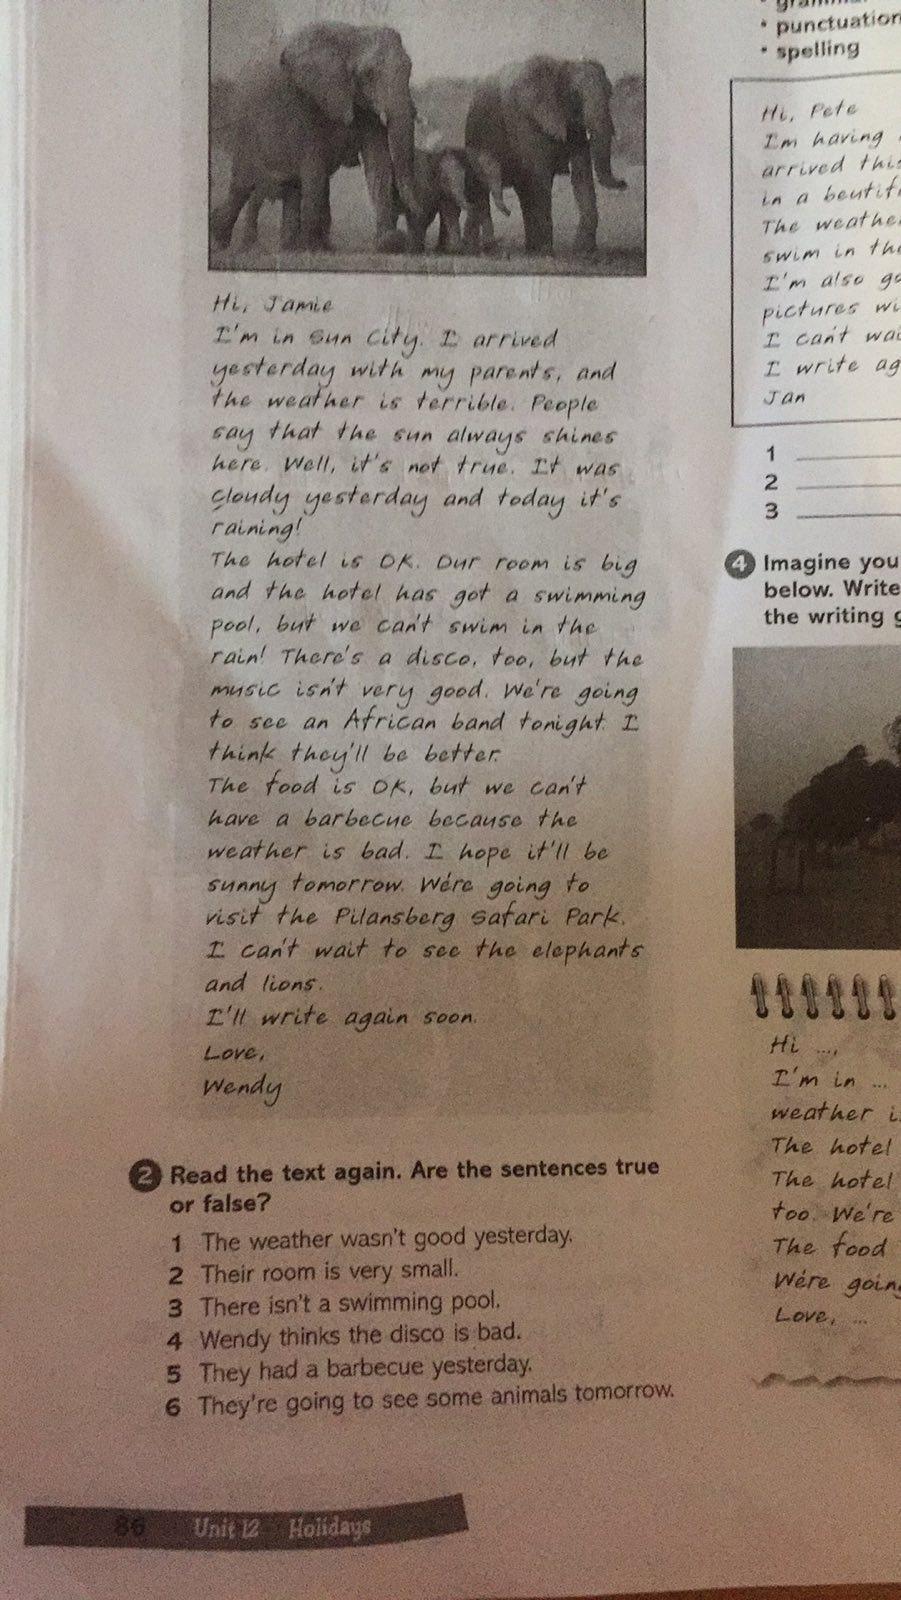 • punctuation
• spelling
Hi, Jamie
I'm in Sun City. I arrived
yesterday with my parents, and
the weather is terrible. People
say that the sun always shines
here. Well, it's not true. It was
cloudy yesterday and today it's
raining!
The hotel is OK. Our room is big
and the hotel has got a swimming
pool, but we can't swim in the
rain! There's a disco, too, but the
music isn't very good. We're going
to see an African band tonight. I
think they'll be better.
The food is OK, but we can't
have a barbecue because the
weather is bad. I hope it'll be
sunny tomorrow. We're going to
visit the Pilansberg Safari Park.
I can't wait to see the elephants
and lions.
I'll write again soon.
Love,
Wendy
2 Read the text again. Are the sentences true
or false?
1 The weather wasn't good yesterday.
2 Their room is very small.
3 There isn't a swimming pool.
4 Wendy thinks the disco is bad.
5 They had a barbecue yesterday.
6 They're going to see some animals tomorrow.
86 Unit 12 Holidays
Hi, Pete
I'm having
arrived
in a
The
swim in
I'm also
pictures
I can't
I write
Jan
1
2
3
4 Imagine you
below. Write
the writing
Hi ...,
I'm in ...
weather
The hotel
The hotel
too. We're
The food
We're
Love, ...